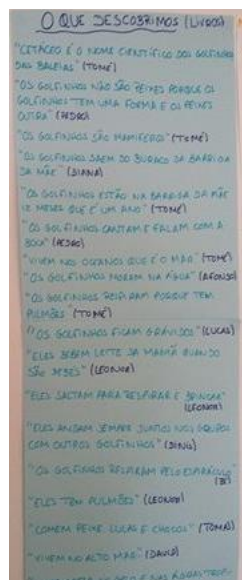 O QUE DESCOBRIMOS (LIVROS)
"CETÁCEO É O NOME CIENTÍFICO DOS GOLFINHOS
DAS BALEIAS" (TOMÉ)
"OS GOLFINHOS NÃO SÃO PEIXES PORQUE OS
GOLFINHOS TEM UMA FORMA E OS PEIXES
OUTRA" (PEDRO)
"OS GOLFINHOS SÃO MAMÍFEROS" (TOMÉ)
"OS GOLFINHOS SAEM DO BURACO DA BARRIGA
DA MÃE" (DIANA)
"OS GOLFINHOS ESTÃO NA BARRIGA DA MÃE
12 MESES QUE É UM ANO" (TOMÉ)
"OS GOLFINHOS CANTAM E FALAM COM A
BOCA" (PEDRO)
"VIVEM NOS OCEANOS QUE É O MAR" (TOMÉ)
"OS GOLFINHOS MORAM NA ÁGUA" (AFONSO)
"OS GOLFINHOS RESPIRAM PORQUE TEM
PULMÕES" (TOMÉ)
"OS GOLFINHOS FICAM GRÁVIDOS" (LUCAS)
"ELES BEBEM LEITE DA MAMÃ QUANDO
SÃO BEBÉS" (LEONOR)
"ELES SALTAM PARA RESPIRAR E BRINCAR"
(LEONOR)
"ELES ANDAM SEMPRE JUNTOS NOS GRUPOS
COM OUTROS GOLFINHOS" (DINIS)
"OS GOLFINHOS RESPIRAM PELO ESPIRÁCULO"
"ELES TEM PULMÕES" (LEONOR)
"COMEM PEIXE, LULAS E CHOCOS" (TOMÁS)
"VIVEM NO ALTO MAR" (DAVID)